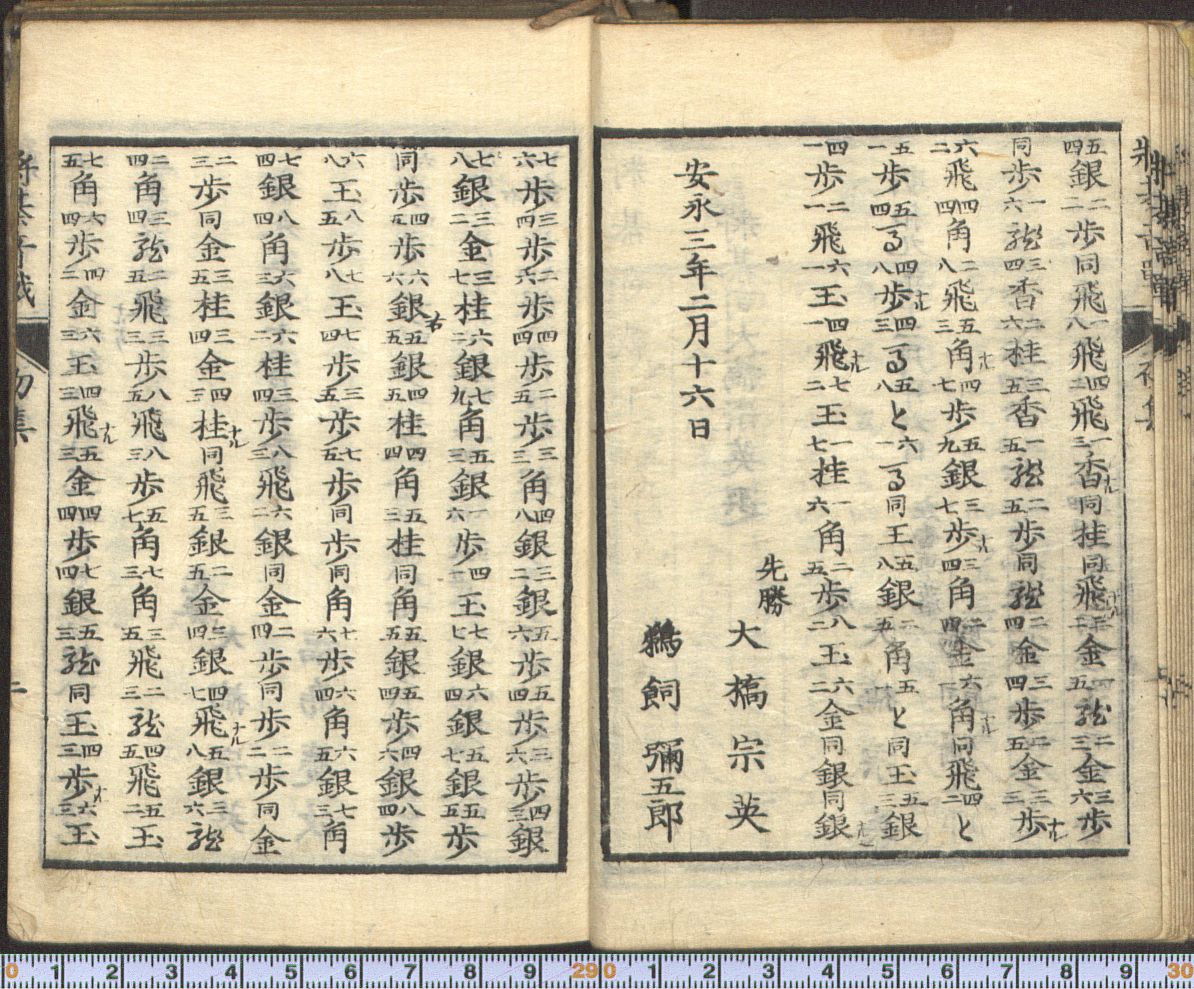 五四銀二二歩同飛一八飛四二飛一三香ナル同桂同飛ナル三二金一五龍二三金三六歩
同歩一六龍三四香二六桂三五香一五龍二五歩同龍二四金三四歩二五金三三歩ナル
六二飛四四角二八飛五三角ナル四七歩五九銀三七歩ナル三四角二四金六一角ナル同飛四二と
五一歩五四馬四八歩ナル四三馬五八と六一馬同王五八銀二五角五一と同王五三銀
四一歩二一飛六一王四一飛ナル七二王一七桂一六角二五歩八二王六二金同銀同銀ナル
安永三年二月十六日
先勝 大橋宗英
鵜飼彌五郎
七六歩三四歩二六歩四四歩二五歩三三角四八銀三二銀五六歩五四歩三六歩四三銀
七八銀三二金三七桂六二銀七九角五三銀一六歩四一王七七銀六四銀五七銀五五歩
同歩四五歩六六銀右五五銀四五桂四四角五三桂同角五五銀五四歩四六銀八四歩
六八王八五歩七八王七四歩三五歩七五歩同歩同角七六歩六四角六五銀七三角
七四銀八四角六三銀六二桂三四歩八三飛六二銀同金二四歩同歩二二歩同金
二三歩同金三五桂三四金四三桂ナル同飛三五銀二五金三四銀四七飛ナル五八銀三六龍
二四角三四龍二五飛三三歩八五飛八三歩五七角七三角三五飛二三龍四五飛五二王
七五角六四歩四二金六三王四三飛ナル五三金四四歩七四銀五三龍同王四三歩ナル六三王
初集
二
0 1 2 3 4 5 6 7 8 9 29 0 1 2 3 4 5 6 7 8 9 30